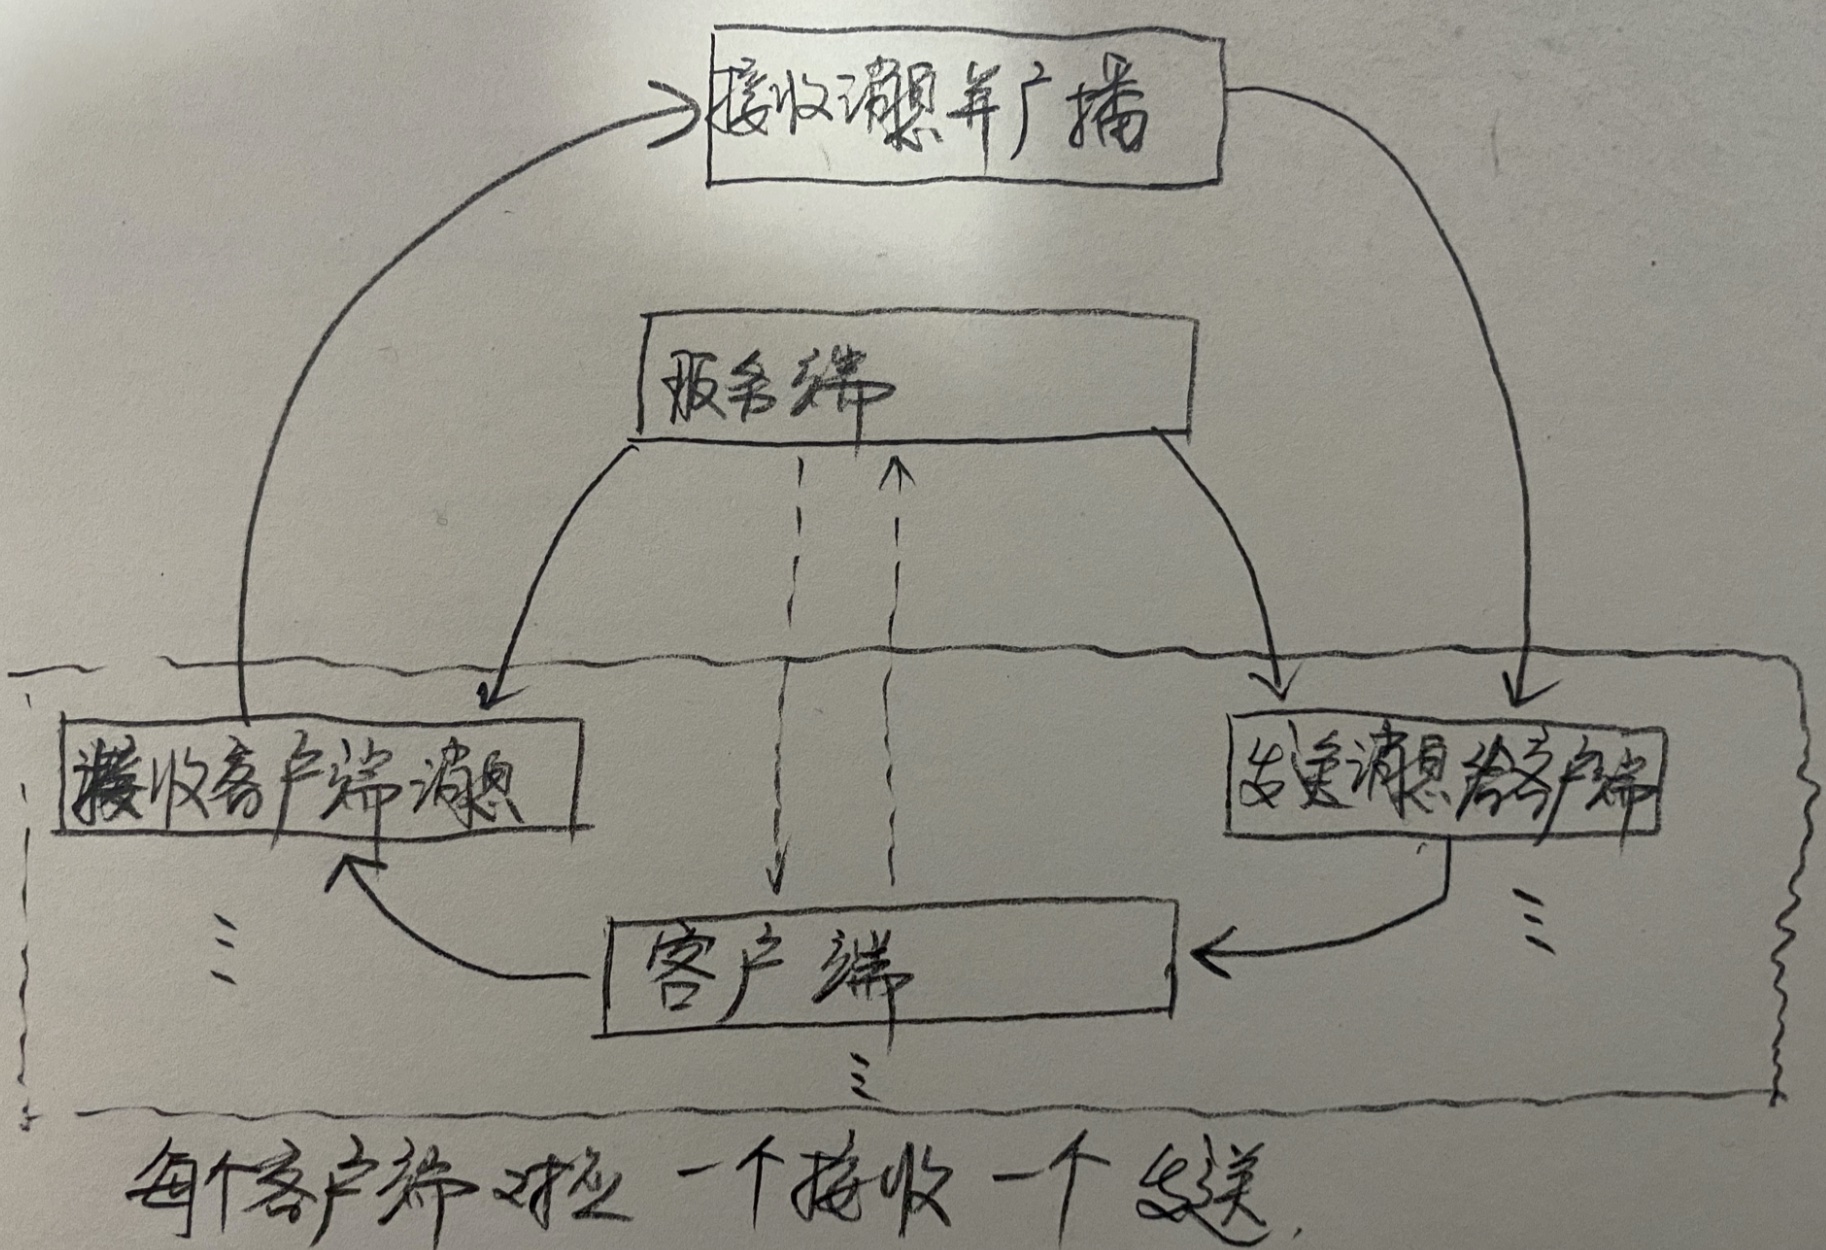 接收消息并广播
服务端
接收客户端消息
发送消息给客户端
客户端
每个客户端对应一个接收一个发送.